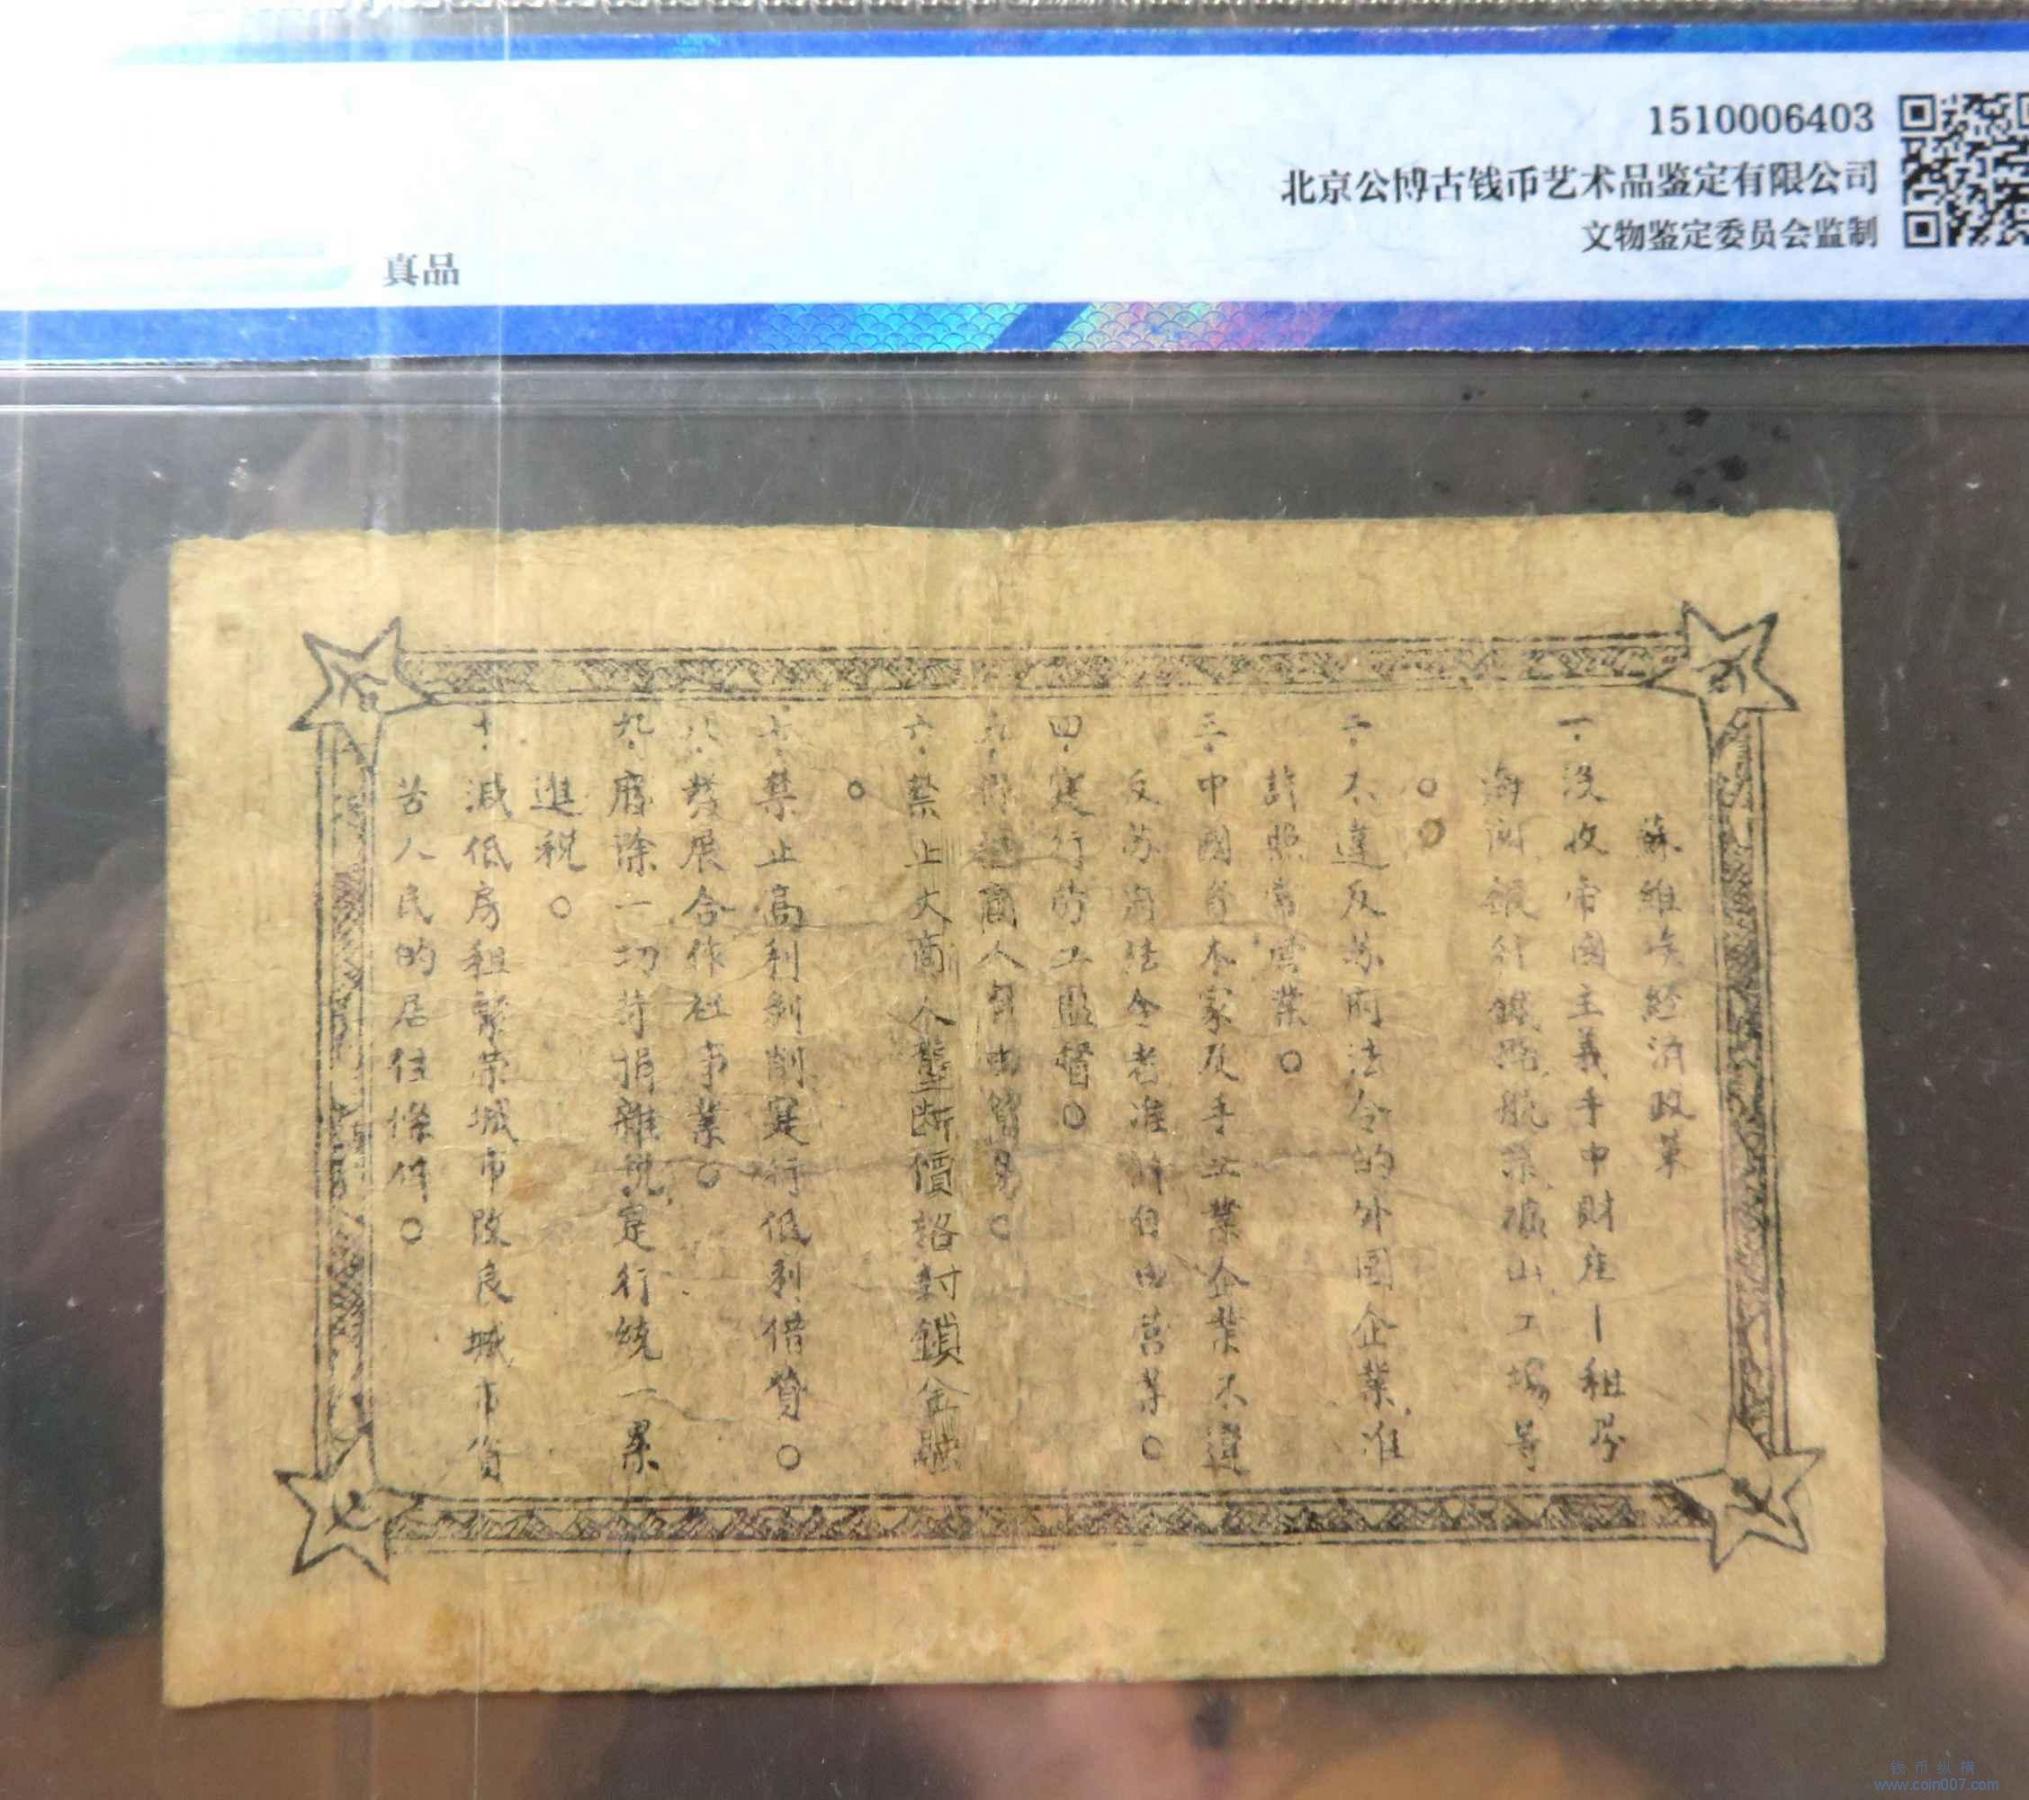 1510006403
北京公博古钱币艺术品鉴定有限公司
文物鉴定委员会监制
真品
蘇維埃经済政策
一.没收帝國主義手中財產—租界
海関.銀行.鐵路.航業.礦山.工場等
○○
二.不違反苏府法令的外国企業,准
許照常营業○
三.中國資本家及手工業企業不違
反苏府法令者准許自由营業○
四.实行劳工監督○
五.保護商人自由貿易○
六.禁止大商人壟断價格封鎖金融
○
七.禁止高利剥削実行低利借貸○
八.發展合作社事業○
九.廢除一切苛捐雜税,実行統一累
進税○
十.減低房租繁荣城市改良城市貧
苦人民的居住條件○
钱币纵横
www.coin007.com